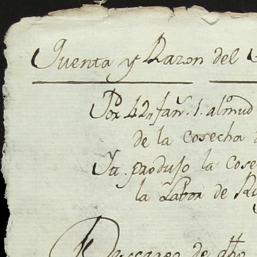 Cuenta y Razon del
Por 42 fan.s 1. almud
de la cosecha d
Ya. produjo la Cose
la Labor de
Descargo de dho